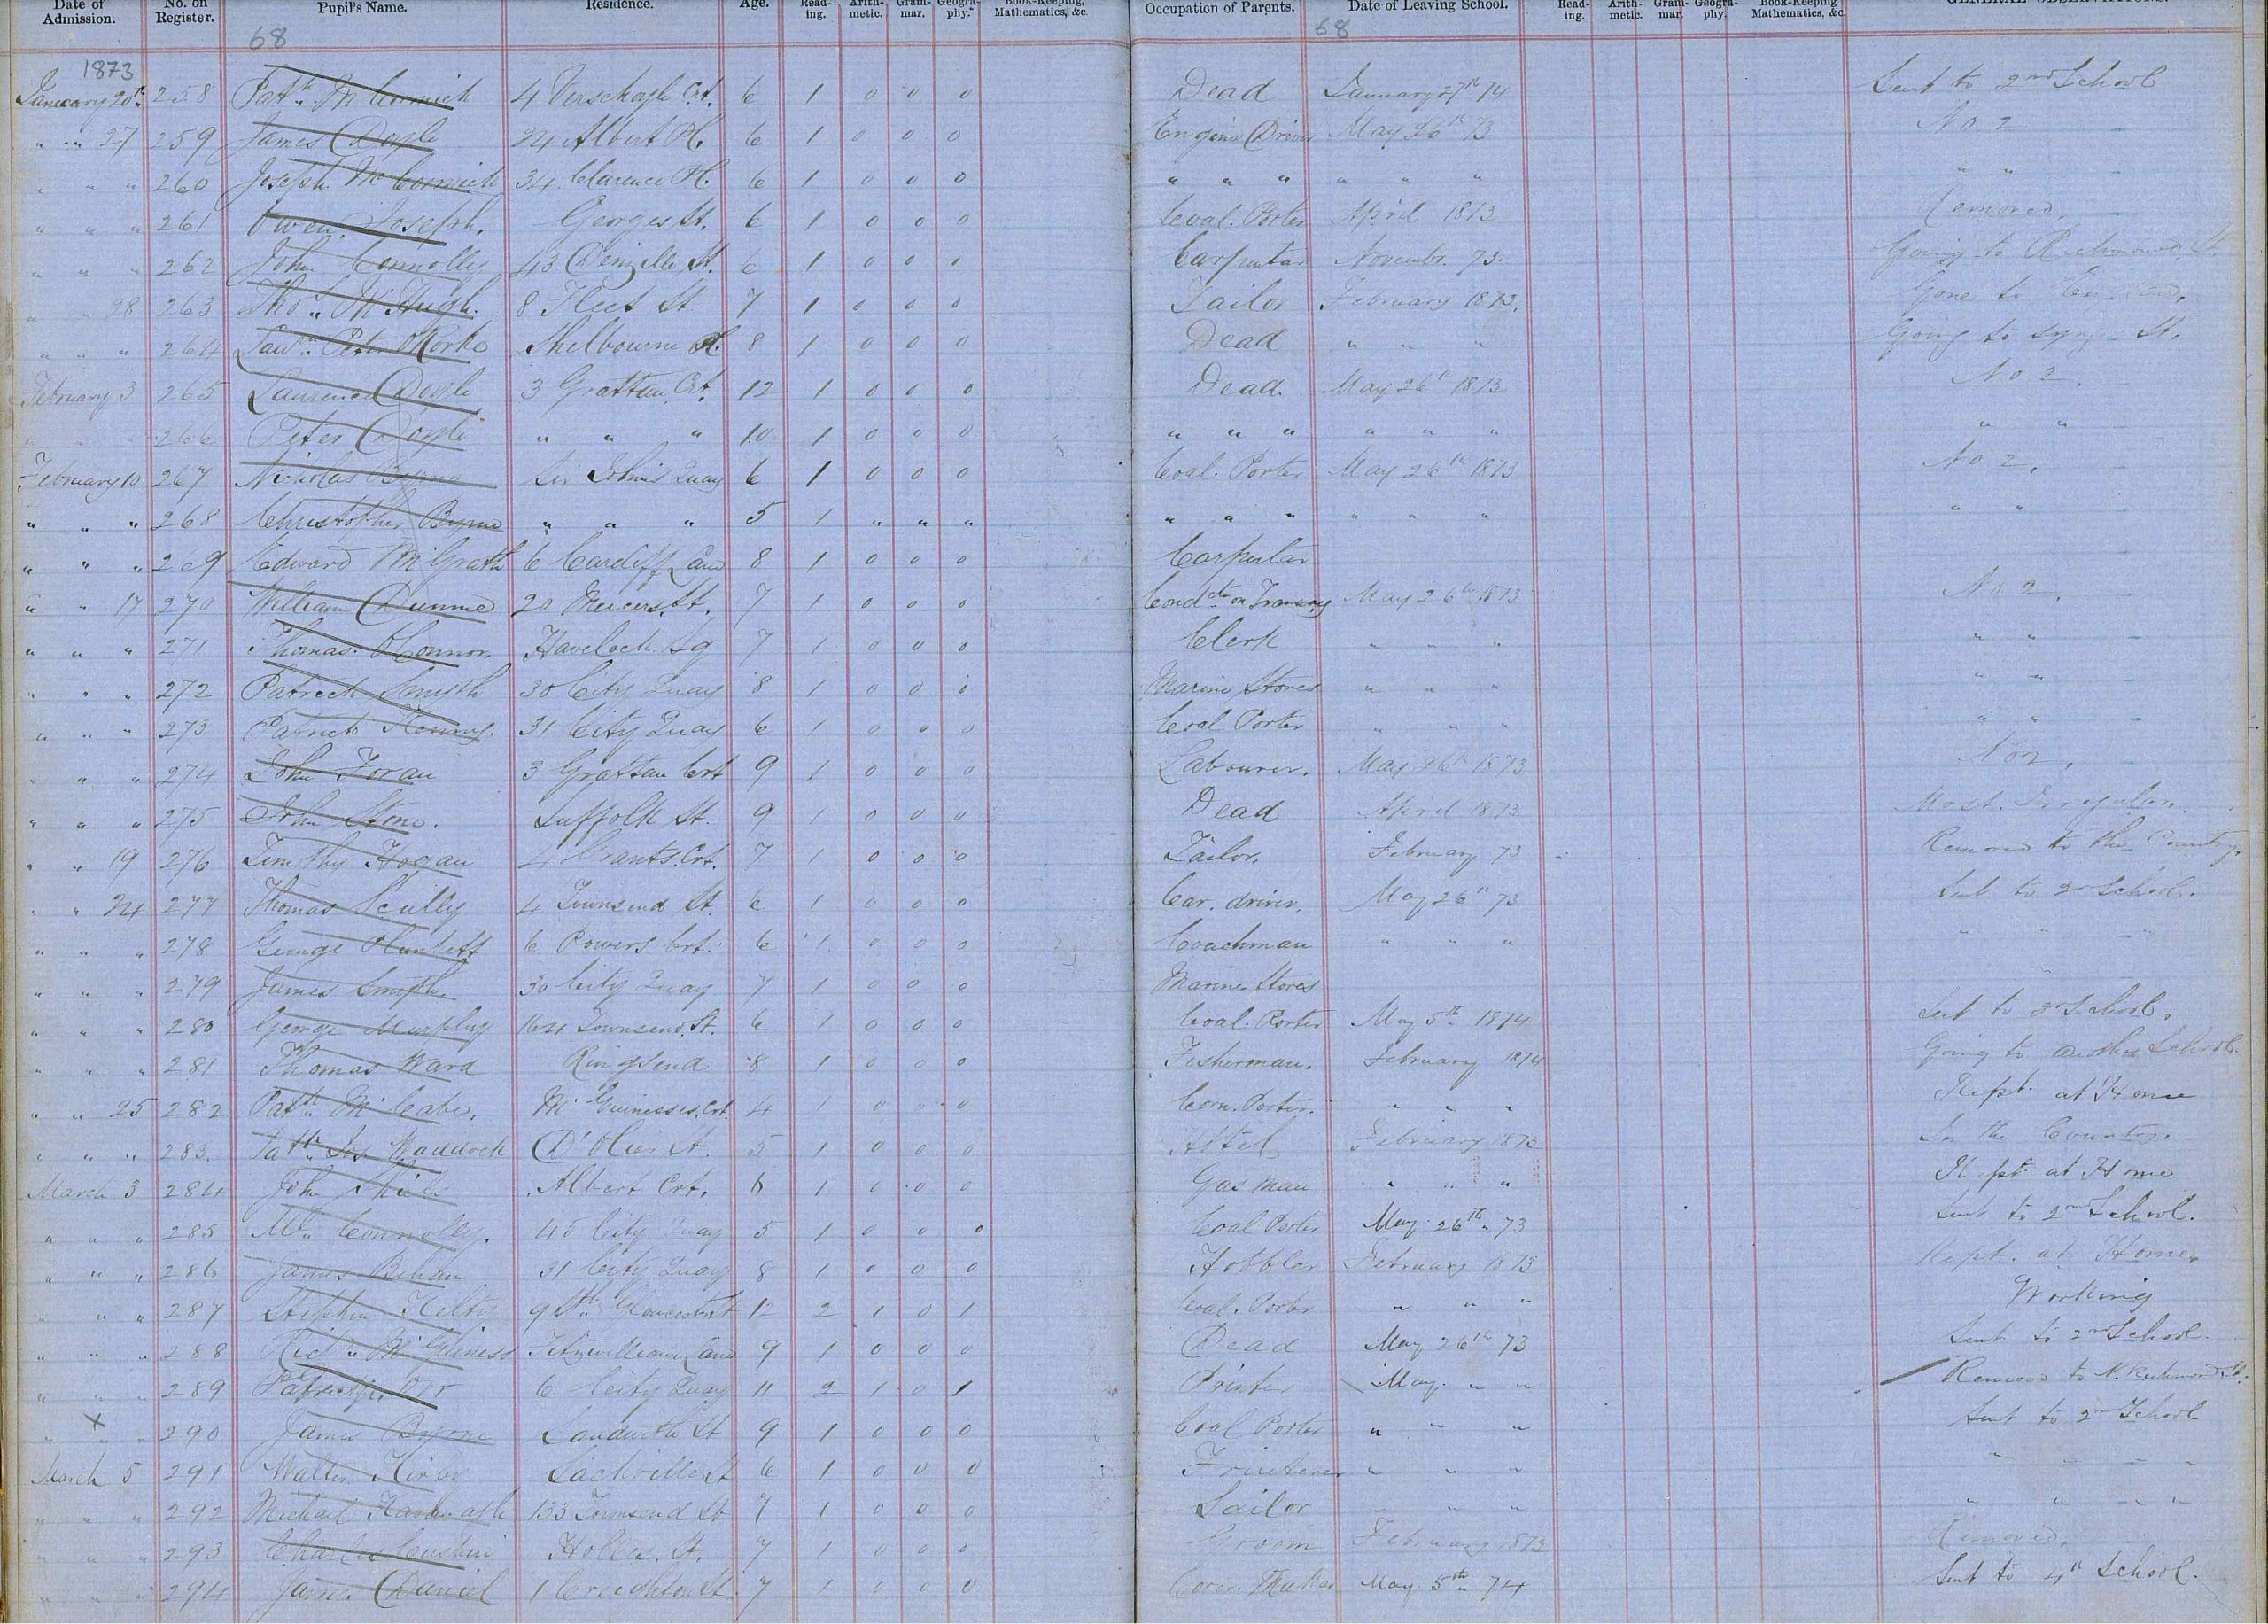 Date of Admission. No. on Register. Pupil's Name. Residence. Age. Read-ing. Arith-metic. Gram-mar. Geogra-phy. Book-Keeping, Mathematics, &c. Occupation of Parents. Date of Leaving School. Read-ing. Arith-metic. Gram-mar. Geogra-phy. Book-Keeping Mathematics, &c. GENERAL OBSERVATIONS.
68 68
1873
January 20th 258 Patk McCormick 4 Verschoyle Crt. 6 1 0 0 0 Dead January 27th 74 Sent to 2nd School
" " 27 259 James Doyle 24 Albert Pl. 6 1 0 0 0 Engine Driver May 26th 73 No 2
" " " 260 Joseph McCormick 34 Clarence Pl. 6 1 0 0 0 " " " " " " " "
" " " 261 Owen Joseph. Georges St. 6 1 0 0 0 Coal. Porter April 1873 Removed.
" " " 262 John Connolly 43 Denzille St. 6 1 0 0 0 Carpenter Novembr. 73. Going to Richmond St.
" " 28 263 Thos. McHugh. 8 Fleet St 7 1 0 0 0 Tailor February 1873. Gone to
" " " 264 Peter Shelbourne Pl. 8 1 0 0 0 Dead " " " Going to Synge St.
February 3 265 Laurence Doyle 3 Grattan Crt. 12 1 0 0 0 Dead. May 26th 1873 No 2.
" " " 266 Peter Doyle " " " 10 1 0 0 0 " " " " " " " "
February 10 267 Nicholas Byrne Sir John's Quay 6 1 0 0 0 Coal. Porter May 26th 1873 No 2.
" " " 268 Christopher Byrne " " " 5 1 " " " " " " " " " " "
" " " 269 Edward McGrath 6 Cardiff Lane 8 1 0 0 0 Carpenter
" " 17 270 William Dunne 20 Mercers St. 7 1 0 0 0 Condctr on Tramway May 26th 1873 No 2.
" " " 271 Thomas O'Connor Havelock Sq 7 1 0 0 0 Clerk " " " " "
" " " 272 Patrick Smyth 30 City Quay 8 1 0 0 0 Marine Stores " " " " "
" " " 273 Patrick Kenny. 31 City Quay 6 1 0 0 0 Coal Porter " " " " "
" " " 274 John Foran 3 Grattan Crt 9 1 0 0 0 Labourer. May 26th 1873 No 2.
" " " 275 John Stone. Suffolk St. 9 1 0 0 0 Dead April 1873 Most Irregular.
" " 19 276 Timothy Hogan 4 Grants Crt. 7 1 0 0 0 Tailor. February 73 Removed to the Country.
" " 24 277 Thomas Scully 4 Townsend St. 6 1 0 0 0 Car. driver. May 26th 73 Sent to 2nd School.
" " " 278 George Plunkett 6 Powers Crt. 6 1 0 0 0 Coachman " " " " " "
" " " 279 James Smyth 30 City Quay 7 1 0 0 0 Marine Stores "
" " " 280 George Murphy 164 Townsend St. 6 1 0 0 0 Coal. Porter May 5th 1874 Sent to 3rd School.
" " " 281 Thomas Ward Ringsend 8 1 0 0 0 Fisherman. February 1874 Going to another School.
" " 25 282 Patk McCabe. McGuinesses Crt 4 1 0 0 0 Corn. Porter. " " " Kept at Home
" " " 283. Patk Jos Waddock D'Olier St. 5 1 0 0 0 Hotel February 1873 In the Country.
March 3 284 John Albert Crt. 6 1 0 0 0 Gas man " " " Kept at Home
" " " 285 Wm Connolly. 45 City Quay 5 1 0 0 0 Coal Porter May 26th 73 Sent to 2nd School.
" " " 286 James Behan 31 City Quay 8 1 0 0 0 Hobbler February 1873 Kept. at Home.
" " " 287 Stephen 9 Sth Gloucester St 12 2 1 0 1 Coal. Porter " " " Working
" " " 288 Richd McGliness Fitzwilliam Lane 9 1 0 0 0 Dead May 26th 73 Sent to 2nd School.
" " " 289 Patrick 6 City Quay 11 2 1 0 1 Printer May. " " Removed to N. Richmond St.
" x " " 290 James Byrne Sandwith St 9 1 0 0 0 Coal Porter " " " Sent to 2nd School
March 5 291 Walter Kirby Sackville St 6 1 0 0 0 Fruiterer " " " " " " "
" " " 292 Michael Kavanagh 133 Townsend St 7 1 0 0 0 Sailor " " " " " " "
" " " 293 Charles Hollis. St. 7 1 0 0 0 Groom February 1873 Removed.
" " " 294 James Daniel 1 Creighton St. 7 1 0 0 0 May 5th 74 Sent to 4th School.